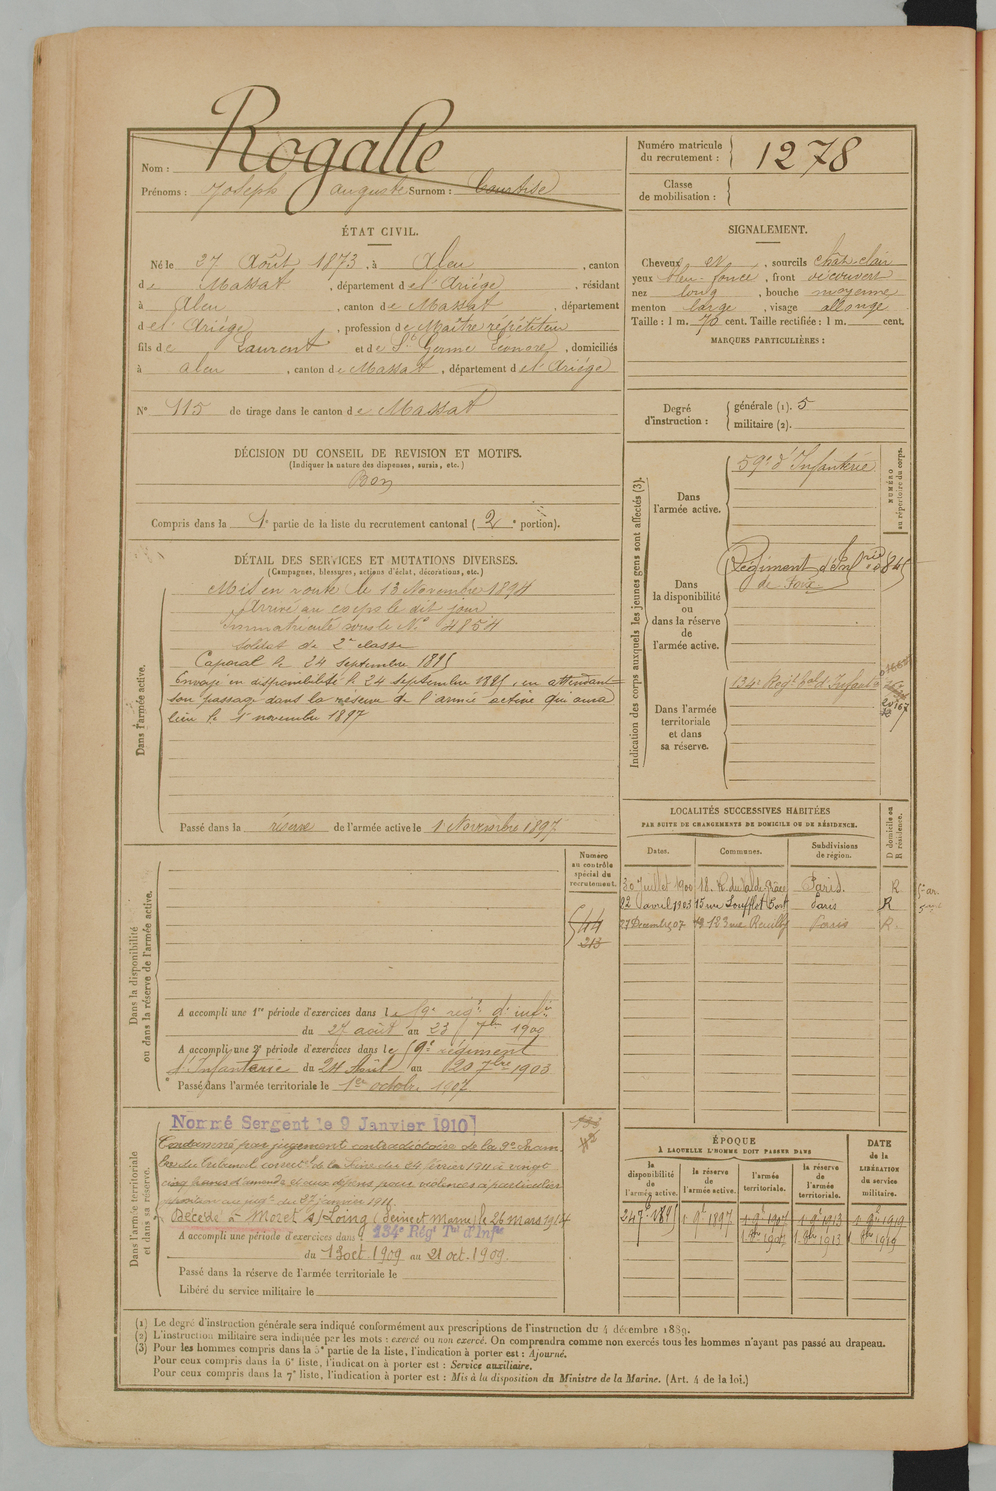 Nom : Rogalle
Prénoms : Joseph auguste Surnom :
Numéro matricule du recrutement : 1278
Classe de mobilisation :
ÉTAT CIVIL.
Né le 27 Août 1873, à Aleu, canton
de Massat, département de l'Ariège, résidant
à Aleu, canton de Massat, département
de l'Ariège, profession de Maître répétiteur
fils de Laurent et de Germe Léonore, domiciliés
à aleu, canton de Massat, département de l'Ariége
N° 115 de tirage dans le canton de Massat
DÉCISION DU CONSEIL DE REVISION ET MOTIFS.
(Indiquer la nature des dispenses, sursis, etc.)
Bon
Compris dans la 1e partie de la liste du recrutement cantonal (2e portion).
SIGNALEMENT.
Cheveux , sourcils chât. clair
yeux bleu-foncé, front découvert
nez long, bouche moyenne
menton large, visage allongé
Taille : 1 m. 70 cent. Taille rectifiée : 1 m. cent.
MARQUES PARTICULIÈRES :
Degré d'instruction : générale (1). 5
militaire (2).
DÉTAIL DES SERVICES ET MUTATIONS DIVERSES.
(Campagnes, blessures, actions d'éclat, décorations, etc.)
Dans l'armée active.
Mis en route le 13 Novembre 1894
Arrivé au corps le dit jour
Immatriculé sous le N° 4854
Soldat de 2e classe
Caporal le 24 septembre 1895
Envoyé en disponibilité le 24 septembre 1895, en attendant
son passage dans la réserve de l'armée active qui aura
lieu le 1 novembre 1897
Passé dans la réserve de l'armée active le 1 Novembre 1897
Indication des corps auxquels les jeunes gens sont affectés (3).
NUMÉRO au répertoire du corps.
Dans l'armée active.
59e d'Infanterie
Dans la disponibilité ou dans la réserve de l'armée active.
Régiment d'Inf
de Foix
845
Dans l'armée territoriale et dans sa réserve.
134e Regt tal d'Infantie
20167
LOCALITÉS SUCCESSIVES HABITÉES
PAR SUITE DE CHANGEMENTS DE DOMICILE OU DE RÉSIDENCE.
Dates. Communes. Subdivisions de région. D domicile ou R résidence.
30 Juillet 1900 18. R. du Val de Grâce Paris. R. 5e ar.
22 avril 1903 15 rue Soufflot Paris R
27 Decembre 07 123 rue Reuilly Paris R.
Dans la disponibilité ou dans la réserve de l'armée active.
Numéro au contrôle spécial du recrutement.
544
213
A accompli une 1re période d'exercices dans le 59e régt d'infie
du 27 août au 23 7bre 1900
A accompli une 2e période d'exercices dans le 59e régiment
d'Infanterie du 24 Août au 20 7bre 1903
Passé dans l'armée territoriale le 1er octobre 1907
Dans l'armée territoriale et dans sa réserve.
Nommé Sergent le 9 Janvier 1910
Condamné par jugement contradictoire de la 9e cham
bre du tribunal correctl de la Seine du 24 février 1911 à vingt
cinq francs d'amende et aux dépens pour violences a particulier
Décédé à Moret s/ Loing (Seine et Marne) le 26 mars 1914
A accompli une période d'exercices dans 134e Régt Tal d'Infie
du 13 oct. 1909 au 21 oct. 1909.
Passé dans la réserve de l'armée territoriale le
Libéré du service militaire le
ÉPOQUE
À LAQUELLE L'HOMME DOIT PASSER DANS
la disponibilité de l'armée active. la réserve de l'armée active. l'armée territoriale. la réserve de l'armée territoriale.
DATE de la LIBÉRATION du service militaire.
24 7bre 1895 1 9bre 1897 1 9bre 1907 1 9bre 1913 1 9bre 1919
1 8bre 1907 1 8bre 1913 1 8bre 1919
(1) Le degré d'instruction générale sera indiqué conformément aux prescriptions de l'instruction du 4 décembre 1889.
(2) L'instruction militaire sera indiquée par les mots : exercé ou non exercé. On comprendra comme non exercés tous les hommes n'ayant pas passé au drapeau.
(3) Pour les hommes compris dans la 5e partie de la liste, l'indication à porter est : Ajourné.
Pour ceux compris dans la 6e liste, l'indication à porter est : Service auxiliaire.
Pour ceux compris dans la 7e liste, l'indication à porter est : Mis à la disposition du Ministre de la Marine. (Art. 4 de la loi.)